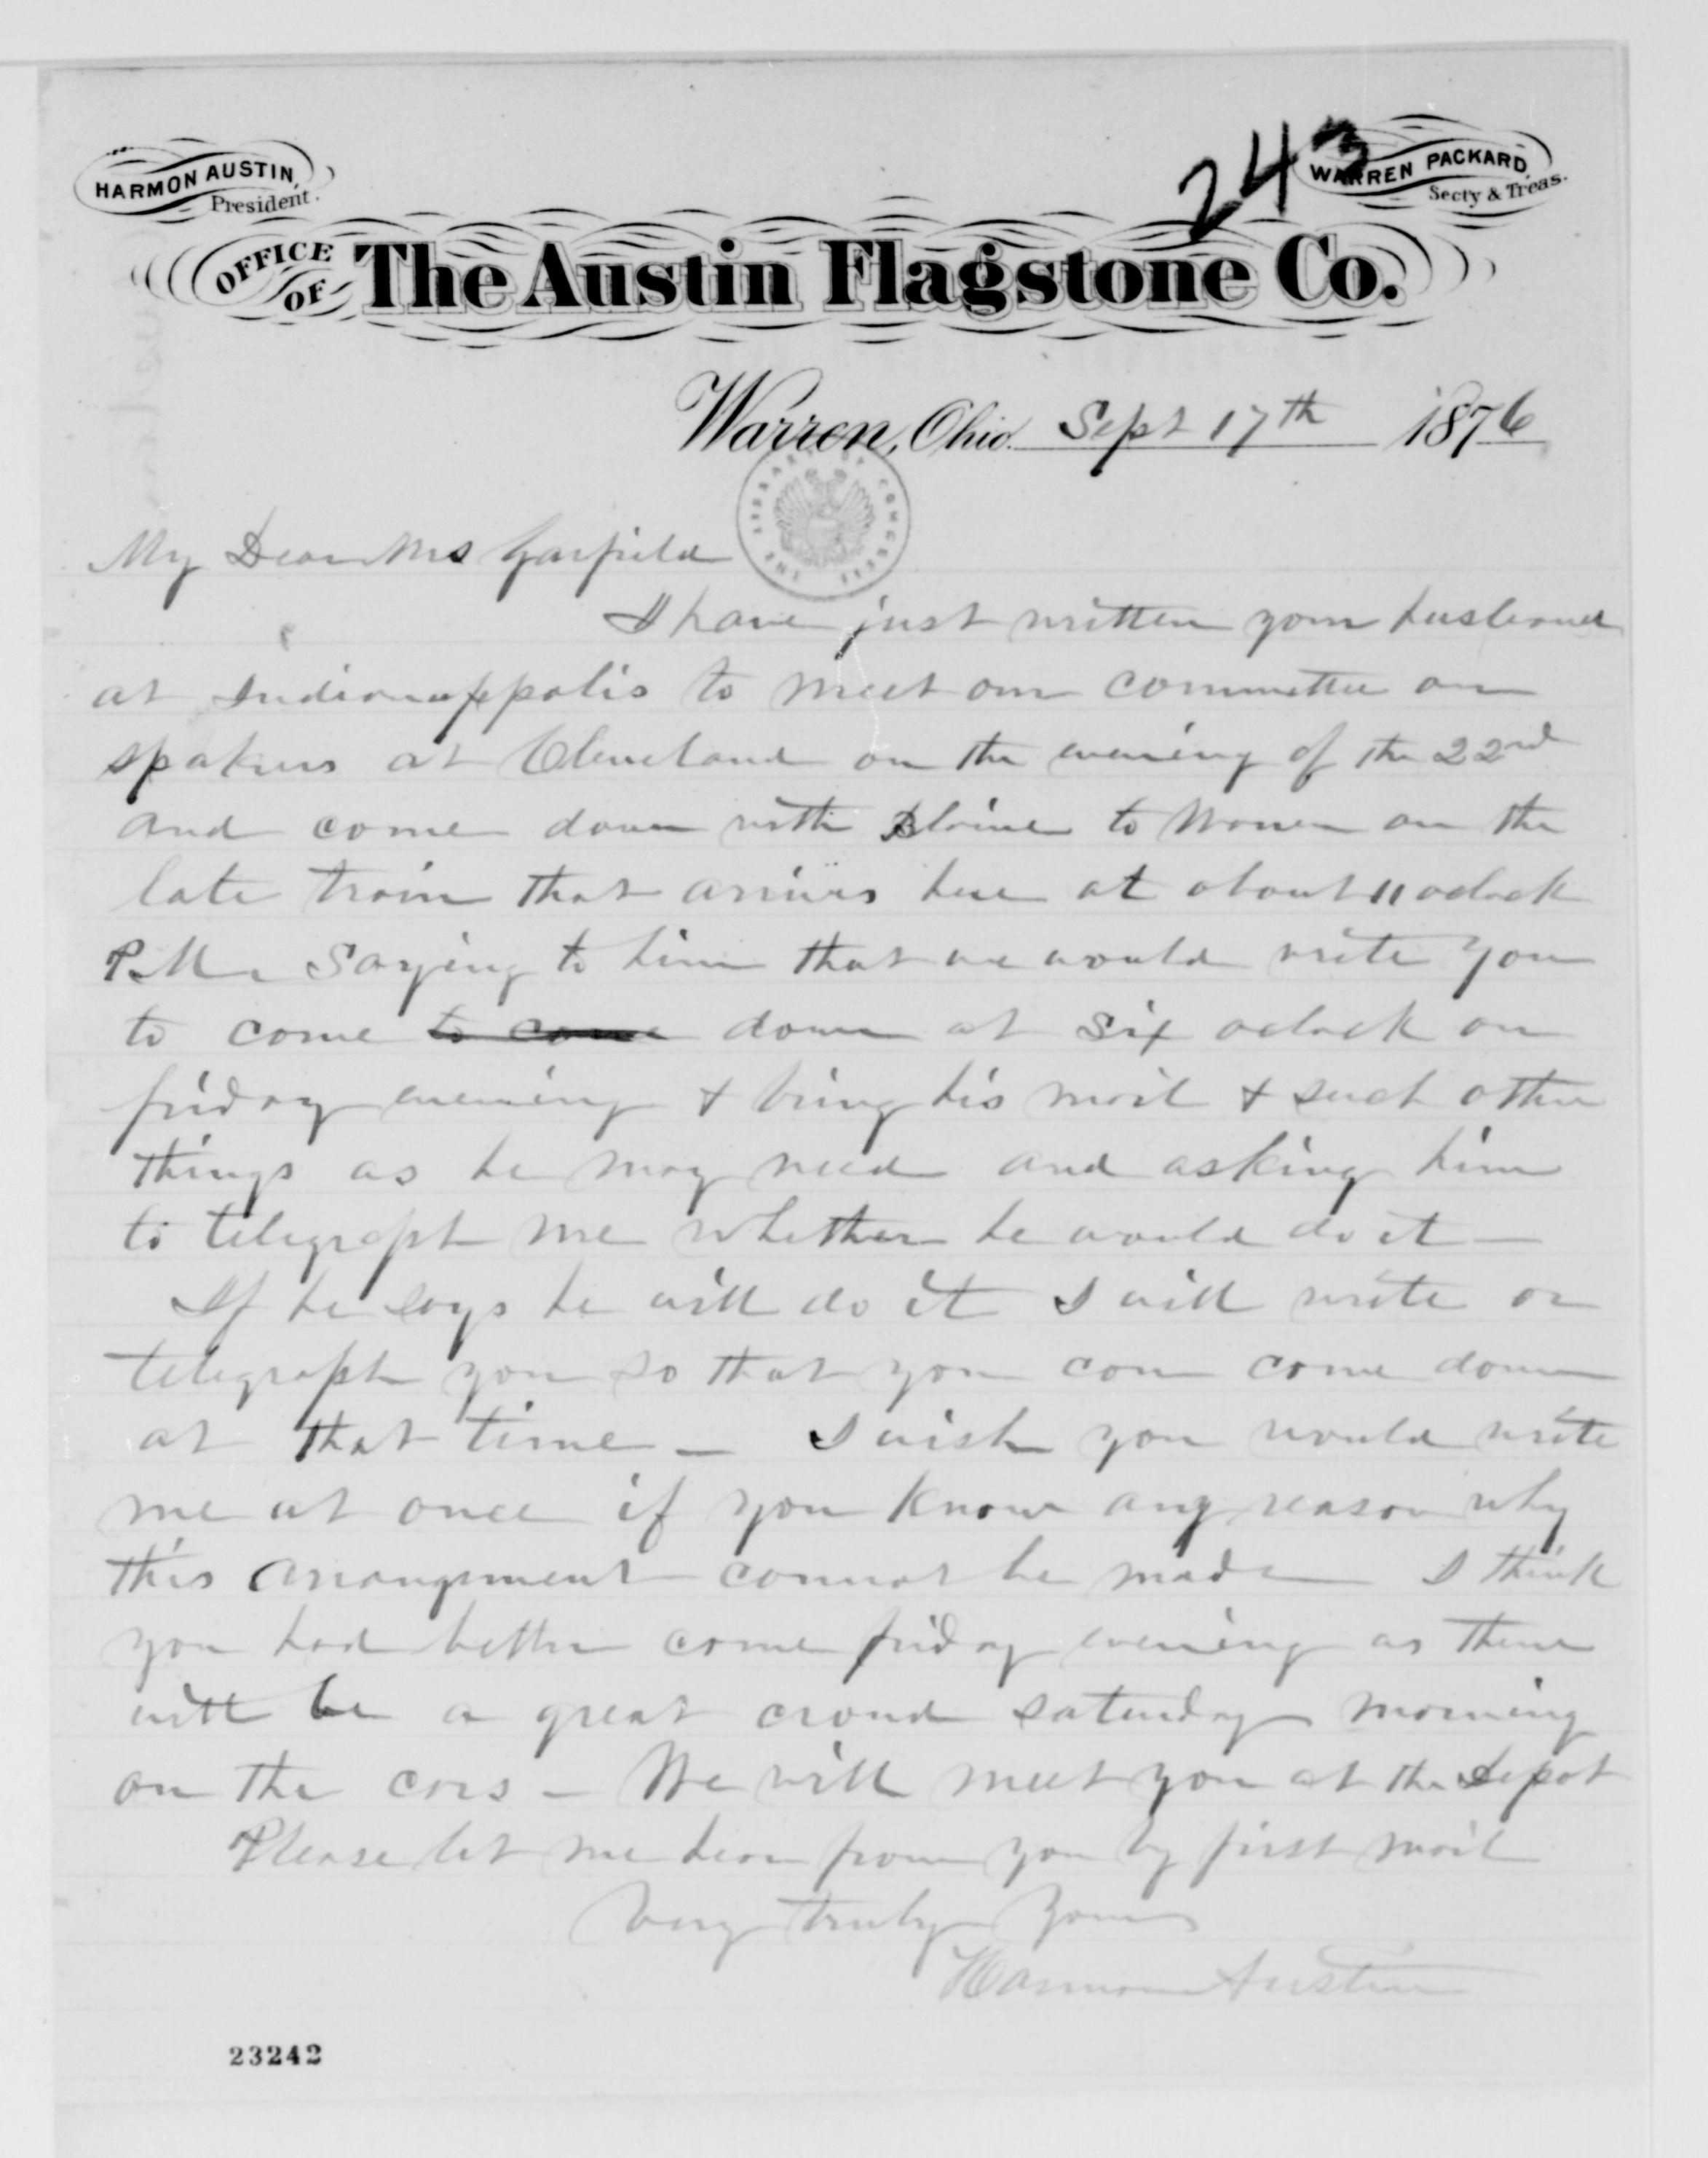 243
HARMON AUSTIN, President.
WARREN PACKARD, Secty & Treas.
OFFICE OF The Austin Flagstone Co.
Warren, Ohio. Sept 17th 1876
THE LIBRARY OF CONGRESS
My Dear Mrs Garfield
I have just written your husband
at Indianappolis to meet our committee on
spakers at Cleveland on the evening of the 22nd
and come down with Blaine to Warren on the
late train that arrives here at about 11 oclock
P.M. Saying to him that we would write you
to come to come down at six oclock on
friday evening + bring his mail + such other
things as he may need and asking him
to telegraph me whether he would do it —
If he says he will do it I will write or
telegraph you so that you can come down
at that time — I wish you would write
me at once if you know any reason why
this arrangement cannot be made I think
you had better come friday evening as there
will be a great crowd saturday morning
on the cars — We will meet you at the depot
Please let me hear from you by first mail
Very truly Yours
Harmon Austin
23242